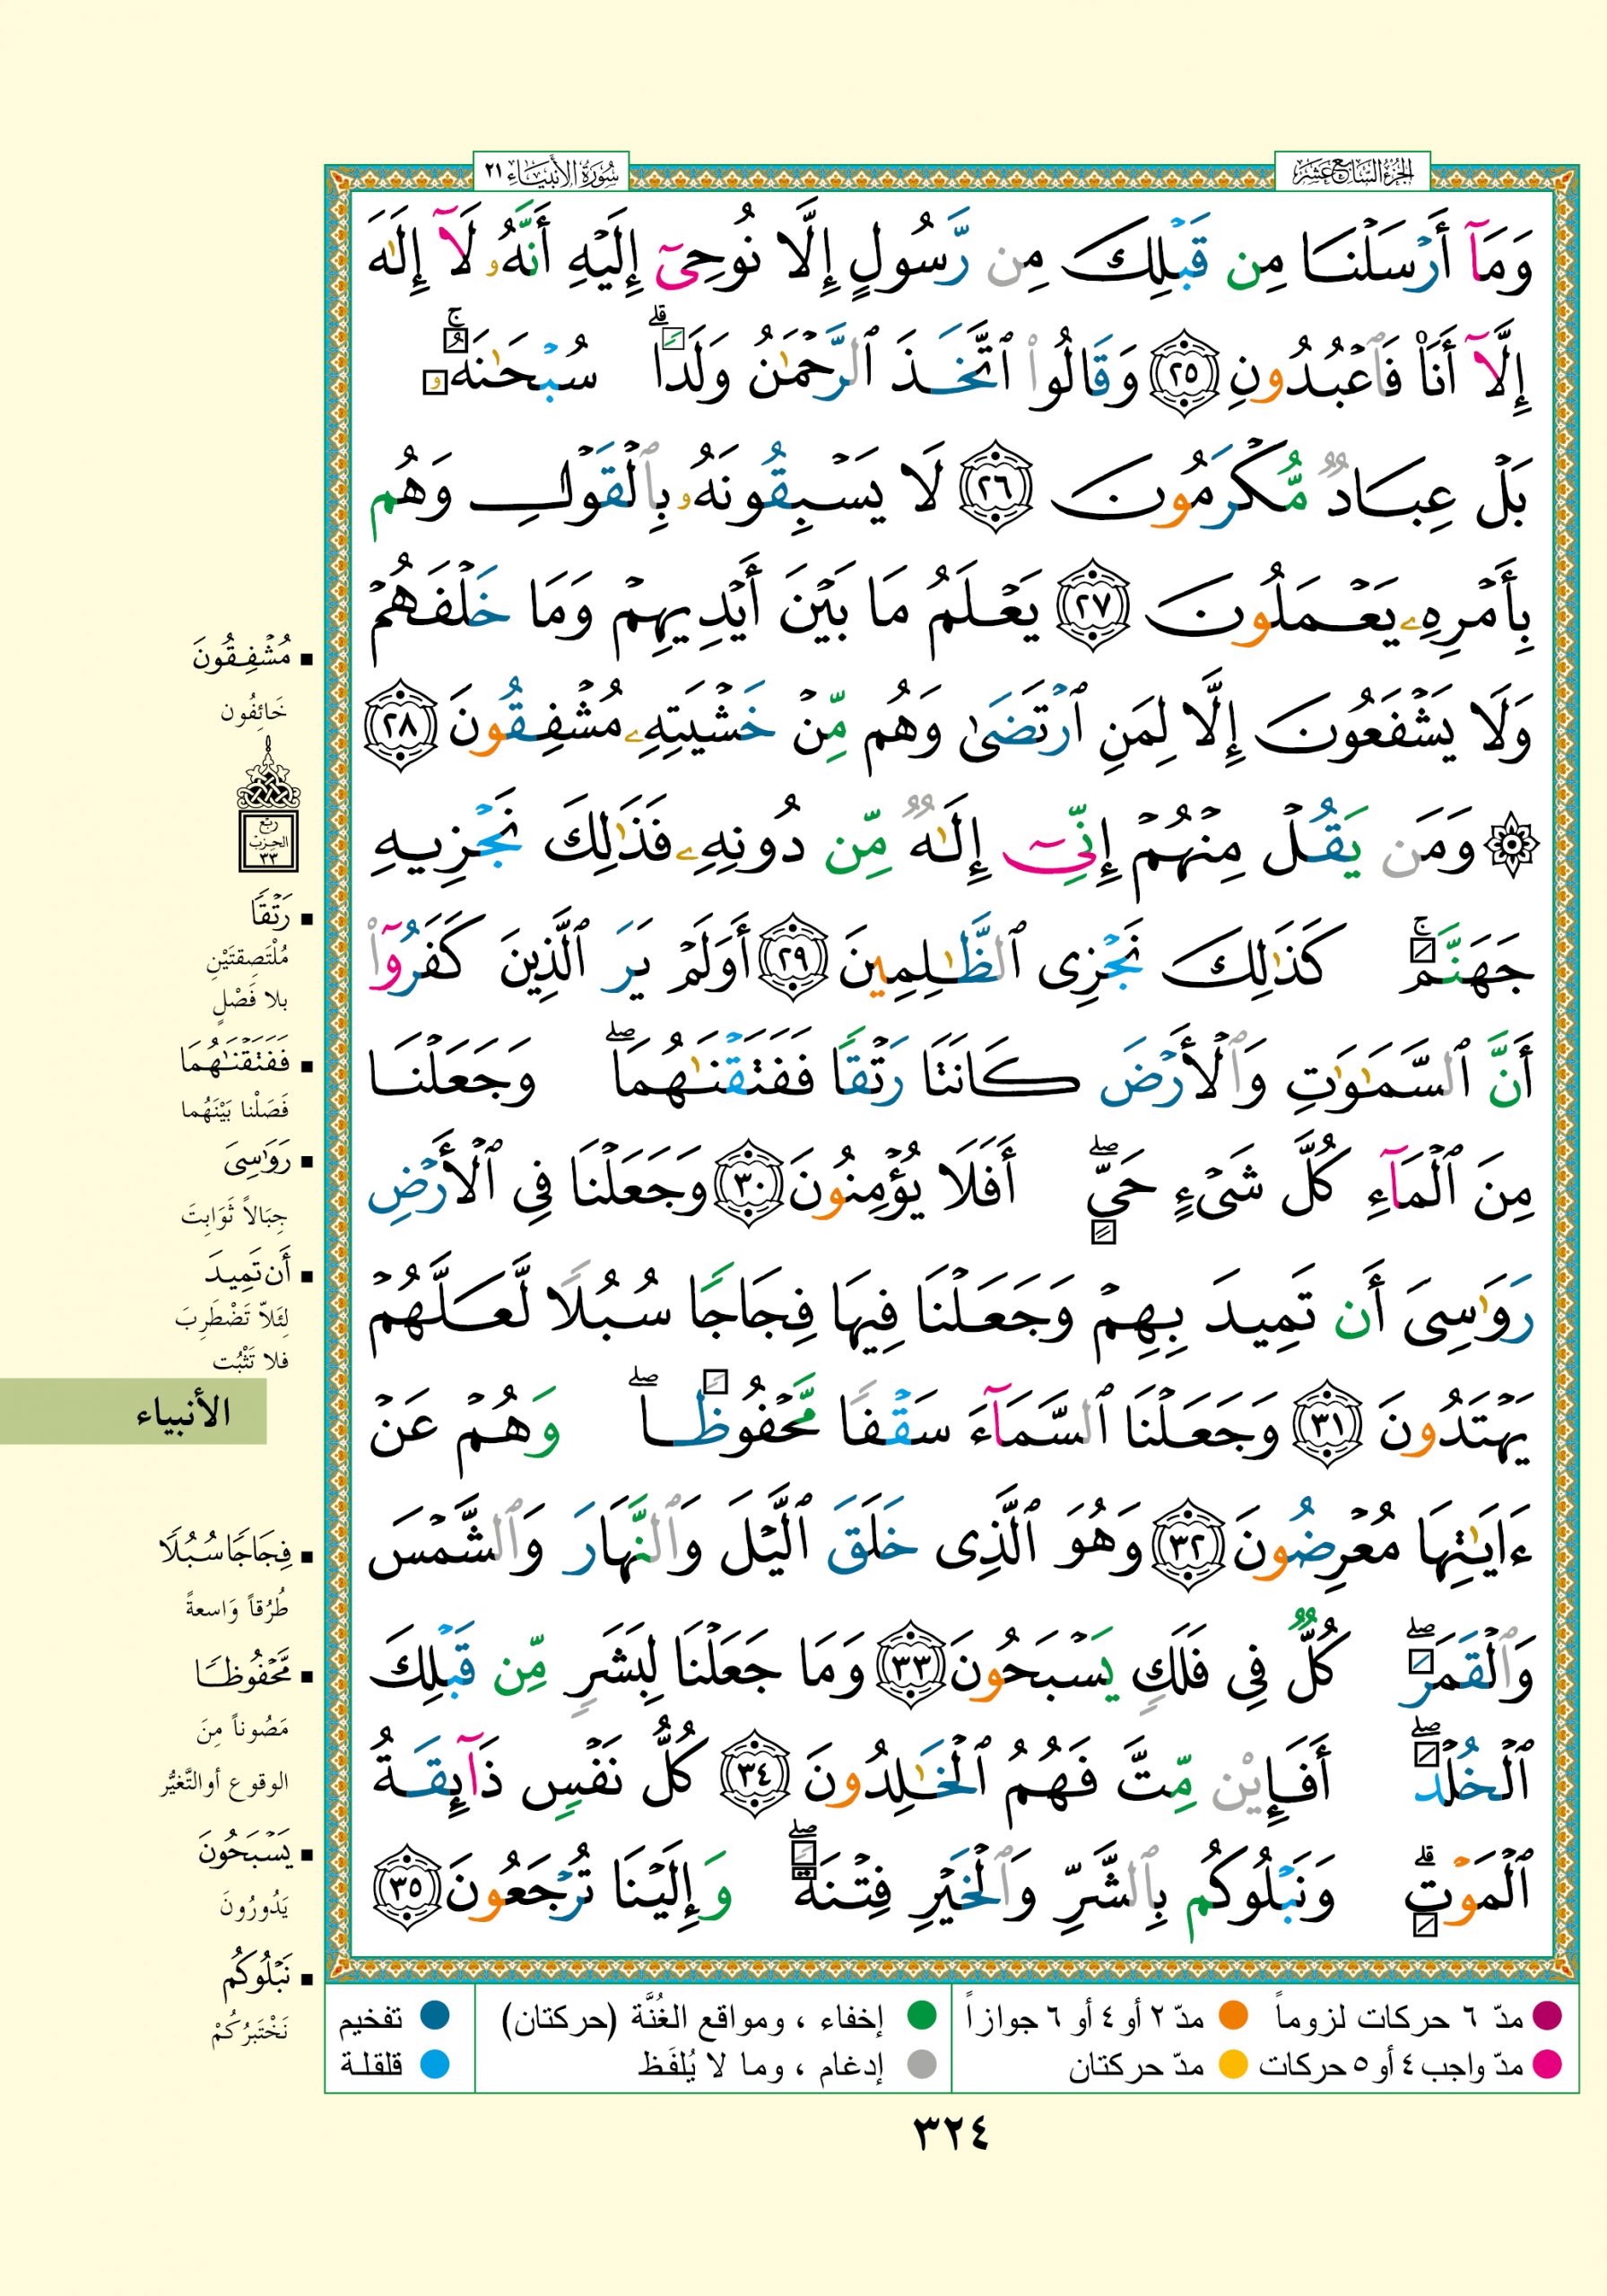 الجزء السابع عشر
سورة الأنبياء ٢١
وَمَآ أَرْسَلْنَا مِن قَبْلِكَ مِن رَّسُولٍ إِلَّا نُوحِىٓ إِلَيْهِ أَنَّهُۥ لَآ إِلَٰهَ
إِلَّآ أَنَا۠ فَٱعْبُدُونِ ٢٥ وَقَالُوا۟ ٱتَّخَذَ ٱلرَّحْمَٰنُ وَلَدًا ۗ سُبْحَٰنَهُۥ ۚ
بَلْ عِبَادٌ مُّكْرَمُونَ ٢٦ لَا يَسْبِقُونَهُۥ بِٱلْقَوْلِ وَهُم
بِأَمْرِهِۦ يَعْمَلُونَ ٢٧ يَعْلَمُ مَا بَيْنَ أَيْدِيهِمْ وَمَا خَلْفَهُمْ
وَلَا يَشْفَعُونَ إِلَّا لِمَنِ ٱرْتَضَىٰ وَهُم مِّنْ خَشْيَتِهِۦ مُشْفِقُونَ ٢٨
۞ وَمَن يَقُلْ مِنْهُمْ إِنِّىٓ إِلَٰهٌ مِّن دُونِهِۦ فَذَٰلِكَ نَجْزِيهِ
جَهَنَّمَ ۚ كَذَٰلِكَ نَجْزِى ٱلظَّٰلِمِينَ ٢٩ أَوَلَمْ يَرَ ٱلَّذِينَ كَفَرُوٓا۟
أَنَّ ٱلسَّمَٰوَٰتِ وَٱلْأَرْضَ كَانَتَا رَتْقًا فَفَتَقْنَٰهُمَا ۖ وَجَعَلْنَا
مِنَ ٱلْمَآءِ كُلَّ شَىْءٍ حَىٍّ ۖ أَفَلَا يُؤْمِنُونَ ٣٠ وَجَعَلْنَا فِى ٱلْأَرْضِ
رَوَٰسِىَ أَن تَمِيدَ بِهِمْ وَجَعَلْنَا فِيهَا فِجَاجًا سُبُلًا لَّعَلَّهُمْ
يَهْتَدُونَ ٣١ وَجَعَلْنَا ٱلسَّمَآءَ سَقْفًا مَّحْفُوظًا ۖ وَهُمْ عَنْ
ءَايَٰتِهَا مُعْرِضُونَ ٣٢ وَهُوَ ٱلَّذِى خَلَقَ ٱلَّيْلَ وَٱلنَّهَارَ وَٱلشَّمْسَ
وَٱلْقَمَرَ ۖ كُلٌّ فِى فَلَكٍ يَسْبَحُونَ ٣٣ وَمَا جَعَلْنَا لِبَشَرٍ مِّن قَبْلِكَ
ٱلْخُلْدَ ۖ أَفَإِي۟ن مِّتَّ فَهُمُ ٱلْخَٰلِدُونَ ٣٤ كُلُّ نَفْسٍ ذَآئِقَةُ
ٱلْمَوْتِ ۗ وَنَبْلُوكُم بِٱلشَّرِّ وَٱلْخَيْرِ فِتْنَةً ۖ وَإِلَيْنَا تُرْجَعُونَ ٣٥
مُشْفِقُونَ
خَائِفُون
ربع
الحزب
٣٣
رَتْقًا
مُلْتَصِقَتَيْنِ
بلا فَصْلٍ
فَفَتَقْنَٰهُمَا
فَصَلْنا بَيْنَهُما
رَوَٰسِىَ
جِبَالاً ثَوَابِتَ
أَن تَمِيدَ
لِئَلاّ تَضْطَرِبَ
فلا تَثْبُت
الأنبياء
فِجَاجًا سُبُلًا
طُرُقاً وَاسعةً
مَّحْفُوظًا
مَصُوناً مِنَ
الوقوع أو التَّغيُّر
يَسْبَحُونَ
يَدُورُونَ
نَبْلُوكُم
نَخْتَبِرُكُمْ
مدّ ٦ حركات لزوماً مدّ ٢ أو ٤ أو ٦ جوازاً إخفاء ، ومواقع الغُنَّة (حركتان) تفخيم
مدّ واجب ٤ أو ٥ حركات مدّ حركتان إدغام ، وما لا يُلفَظ قلقلة
٣٢٤